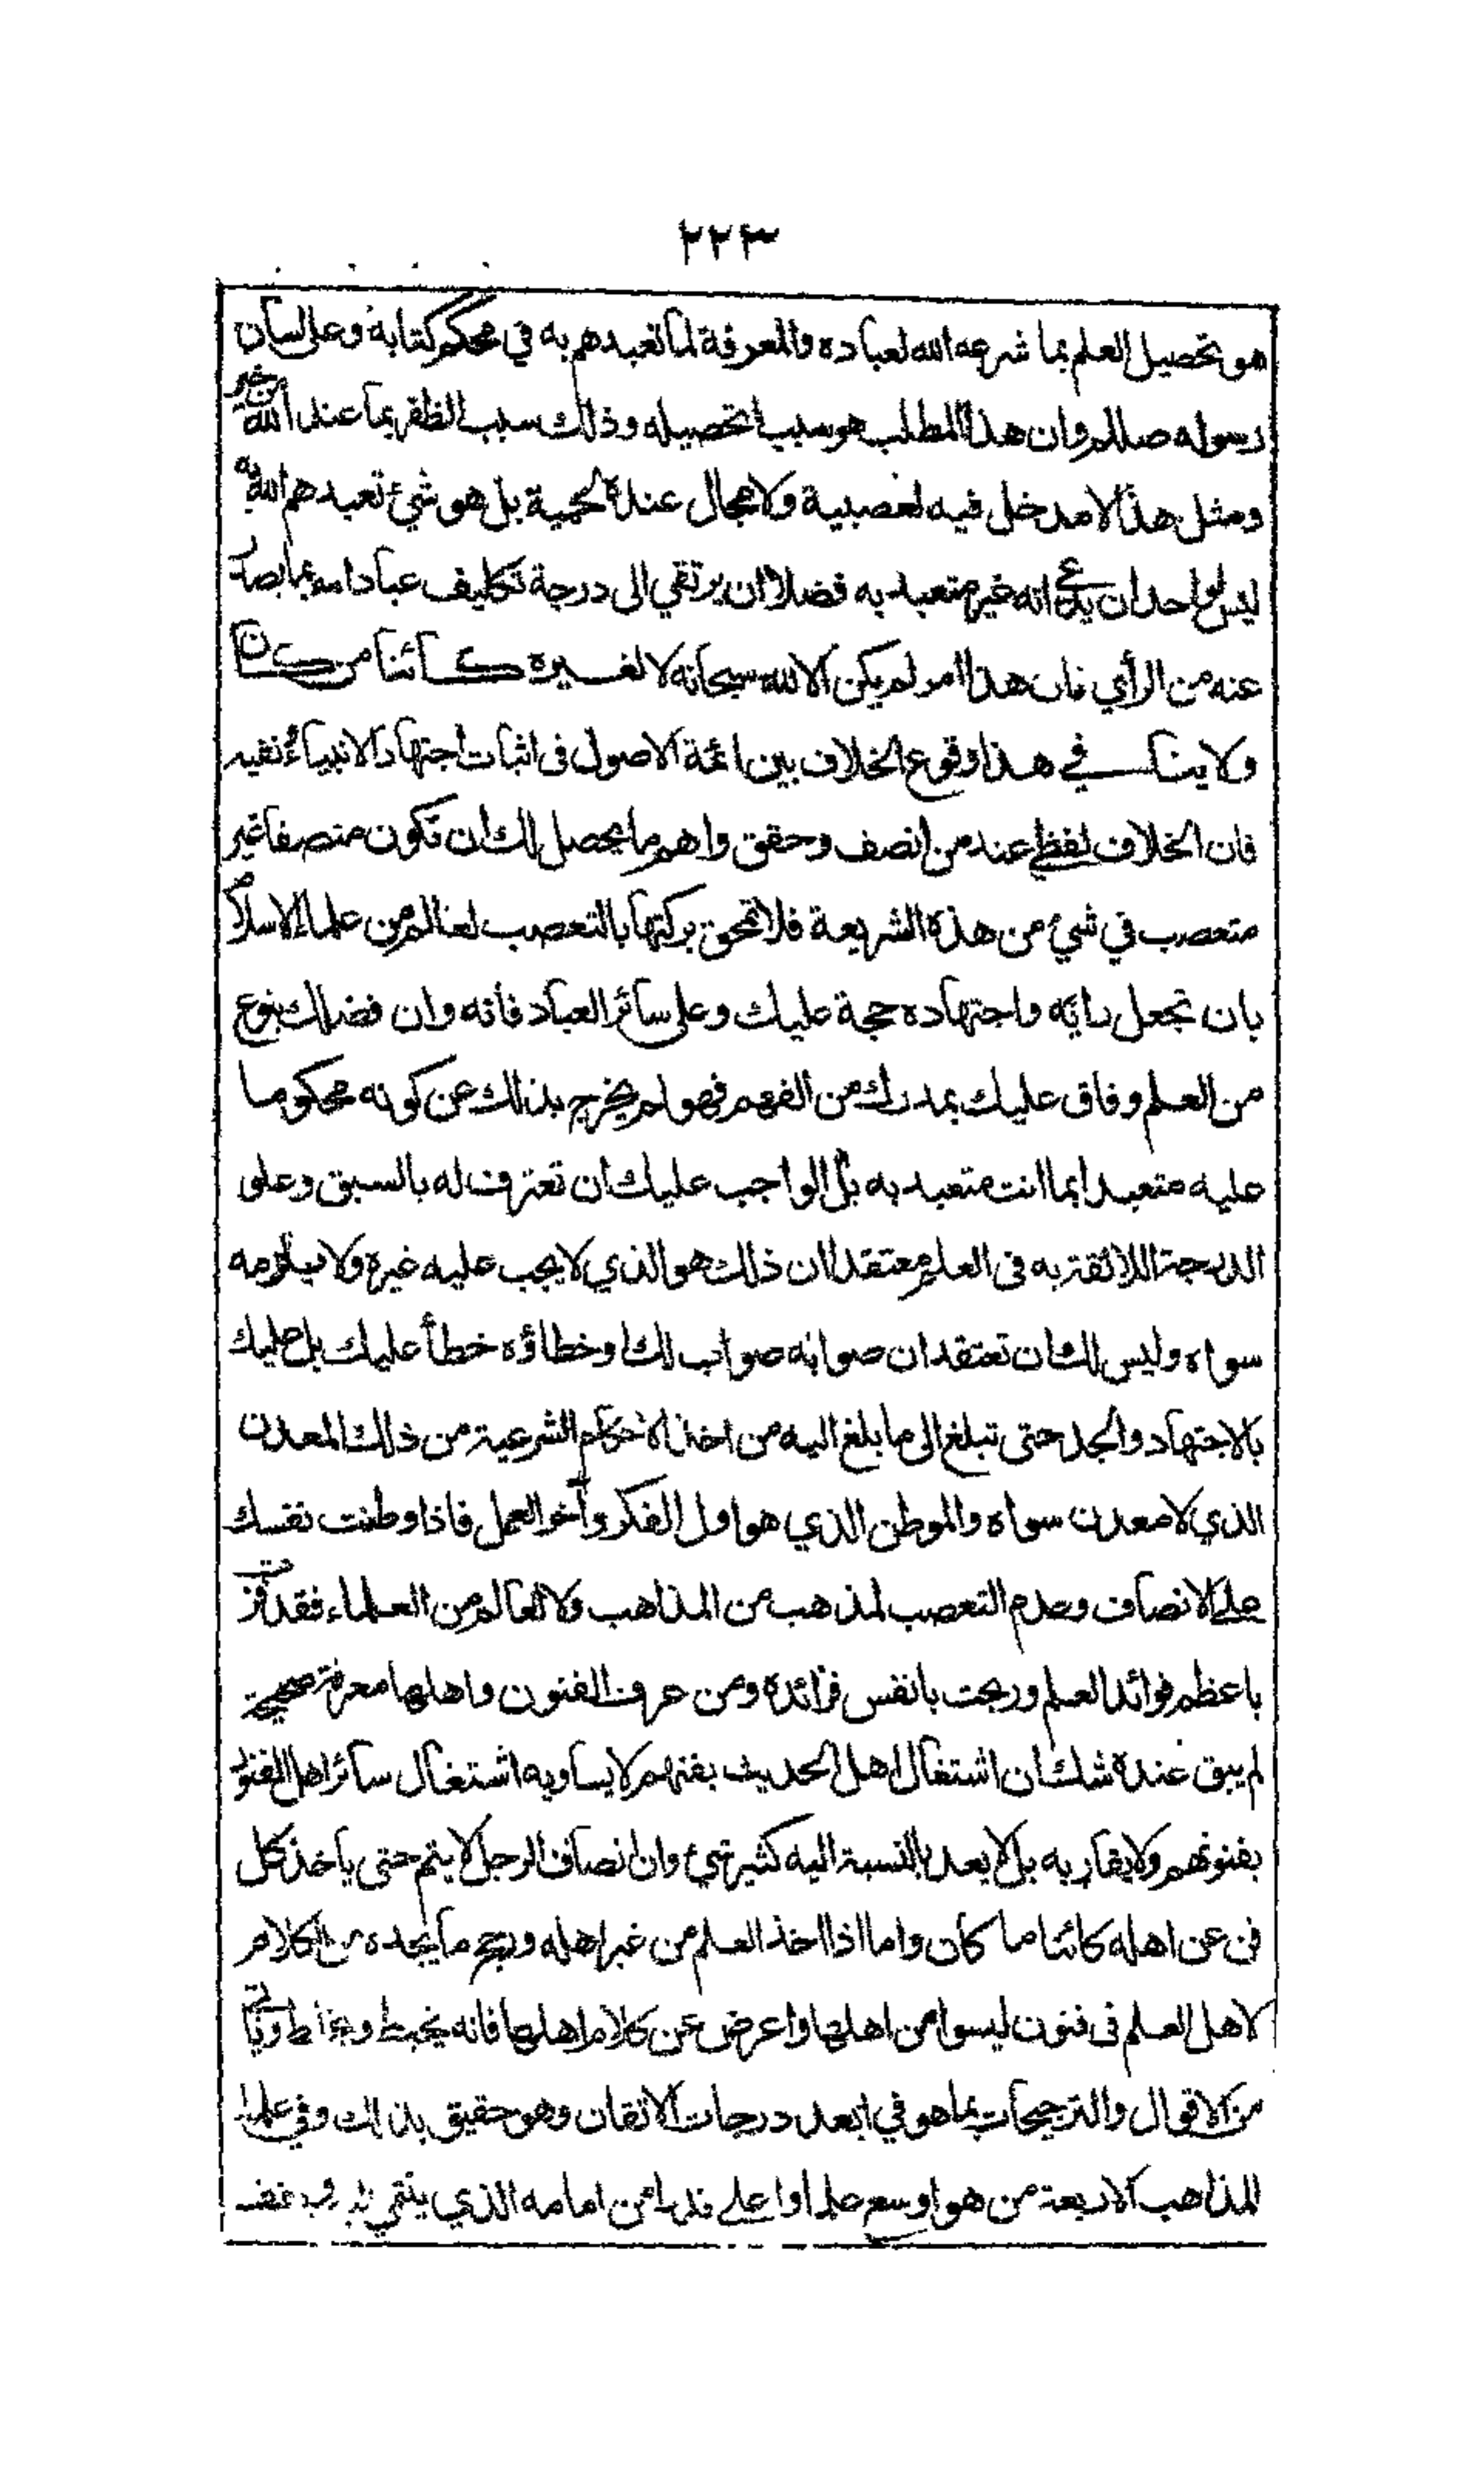 ٢٢٣
هو تحصيل العلم بما شرعه الله لعباده والمعرفة لما تعبدهم به في محكم كتابه وعلى لسان
رسوله صللم وان هذا المطلب هو سبب تحصيله وذلك سبب الظفر بما عند الله من خير
ومثل هذا لا مدخل فيه لعصبية ولا مجال عنده لحمية بل هو شيء تعبدهم الله به
ليس لواحد ان يدعي انه غير متعبد به فضلا ان يرتقي الى درجة تكليف عباد الله بما يصدر
عنه من الرأي فان هذا امر لم يكن الا لله سبحانه لا لغيره كائنا من كان
ولا ينافي هذا وقوع الخلاف بين ائمة الاصول فى اثبات اجتهاد الانبياء ونفيه
فان الخلاف لفظي عند من انصف وحقق واهم ما يحصل لك ان تكون منصفا غير
متعصب في شيء من هذه الشريعة فلا تمحق بركتها بالتعصب لعالم من علماء الاسلام
بان تجعل رايه واجتهاده حجة عليك وعلى سائر العباد فانه وان فضلك بنوع
من العلم وفاق عليك بمدرك من الفهم فهو لم يخرج بذلك عن كونه محكوما
عليه متعبدا بما انت متعبد به بل الواجب عليك ان تعترف له بالسبق وعلى
الدرجة اللائقة به فى العلم معتقدا ان ذلك هو الذي لا يجب عليه غيره ولا يلزمه
سواه وليس لك ان تعتقد ان صوابه صواب لك او خطاؤه خطأ عليك بل عليك
بالاجتهاد والجد حتى تبلغ الى ما بلغ اليه من اخذ الاحكام الشرعية من ذلك المعدن
الذي لا معدن سواه والموطن الذي هو اول الفكر وآخر العمل فاذا وطنت نفسك
على الانصاف وعدم التعصب لمذهب من المذاهب ولا لعالم من العلماء فقد فزت
باعظم فوائد العلم وربحت بانفس فرائده ومن عرف الفنون واهلها معرفة صحيحة
لم يبق عنده شك ان اشتغال اهل الحديث بفنهم لا يساويه اشتغال سائر اهل الفنون
بفنونهم ولا يقاربه بل لا يعد بالنسبة اليه كثير شيء وان انصاف الرجل لا يتم حتى ياخذ كل
فن عن اهله كائنا ما كان واما اذا اخذ العلم من غير اهله ورجح ما يجده من الكلام
لاهل العلم فى فنون ليسوا من اهلها واعرض عن كلام اهلها فانه يخبط ويخلط وياتي
من الاقوال والترجيحات بما هو في ابعد درجات الاتقان وهو حقيق بذلك وفي علماء
المذاهب الاربعة من هو اوسع علما واعلى قدرا من امامه الذي ينتمي اليه